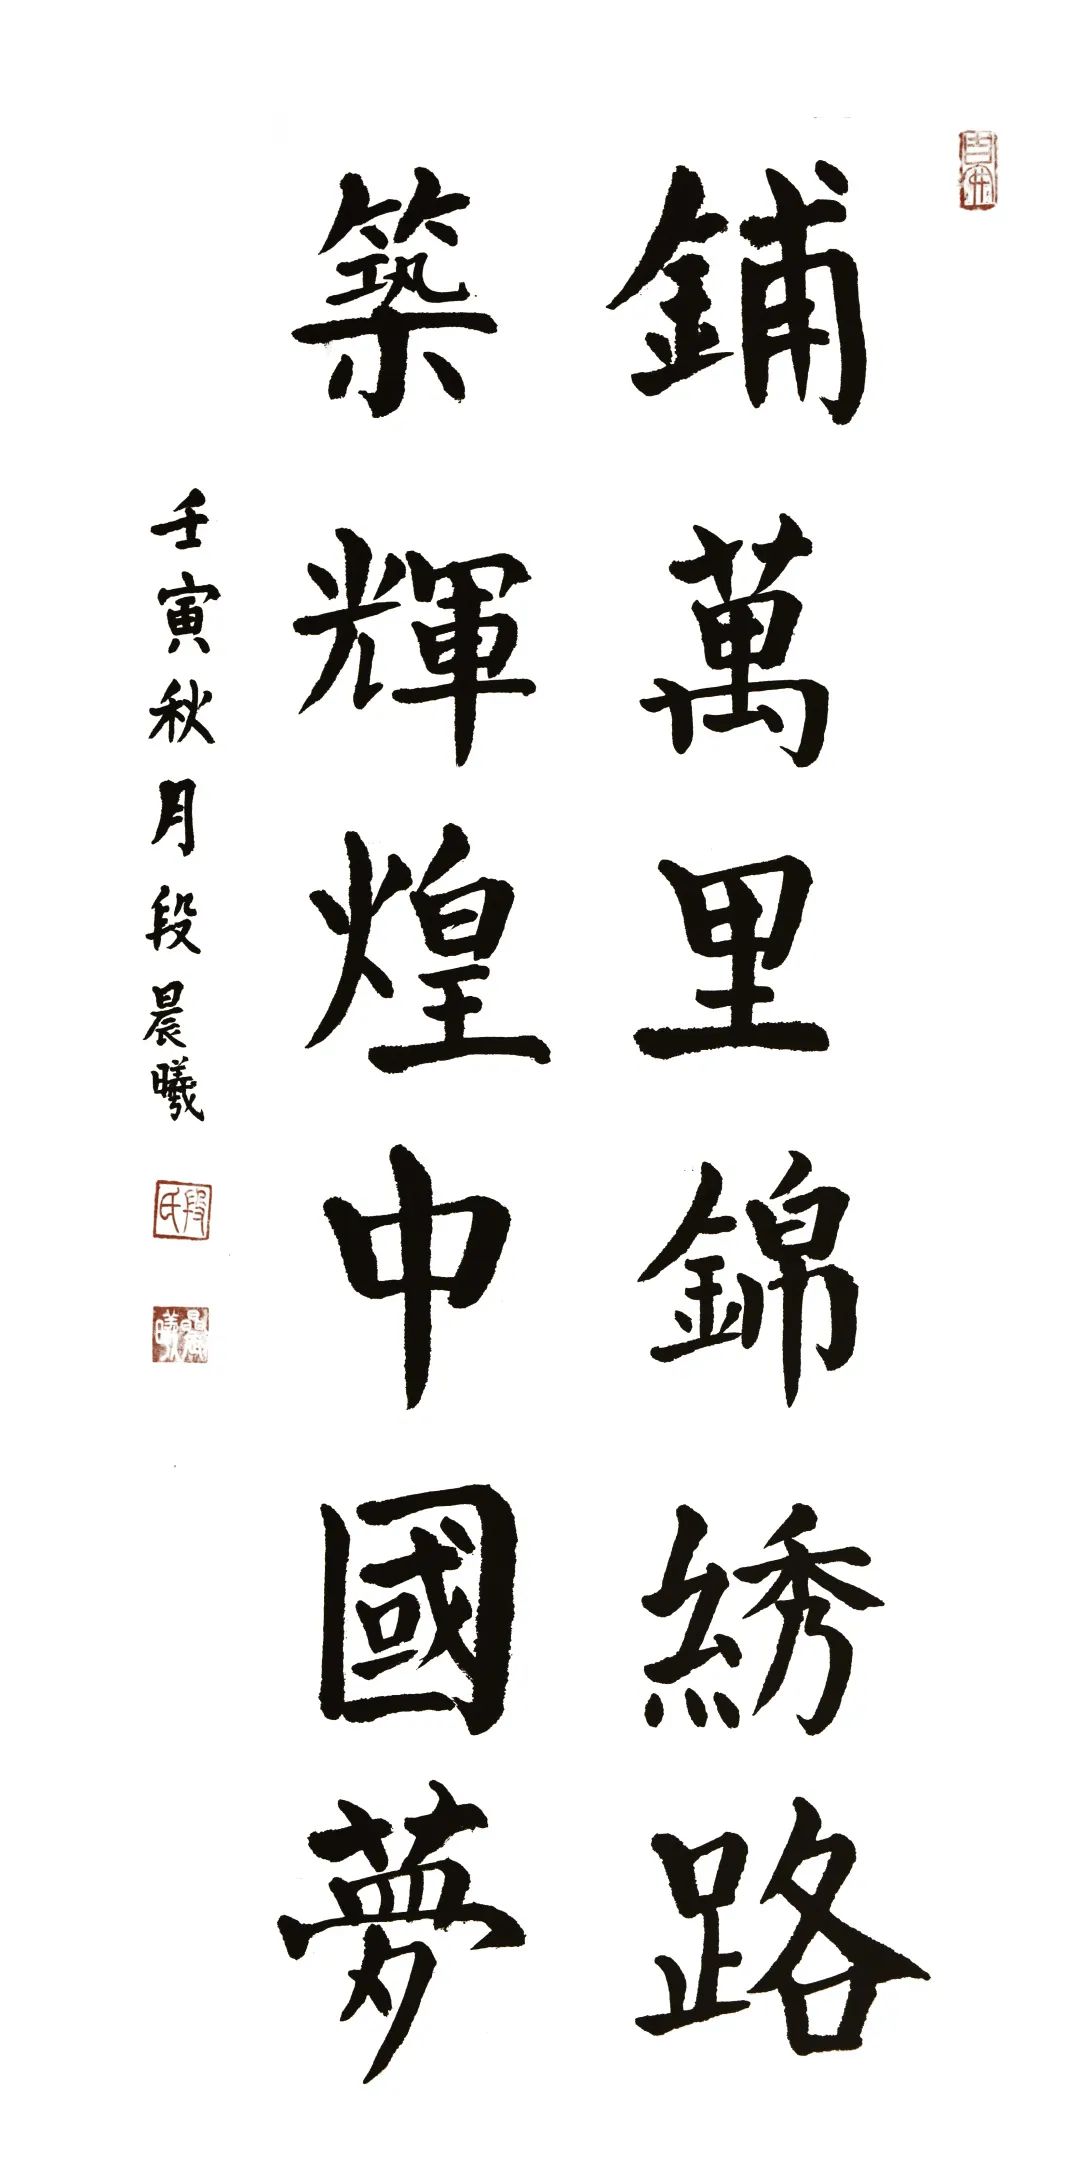 鋪萬里錦綉路
築輝煌中國夢
壬寅秋月段晨曦
段氏
晨曦